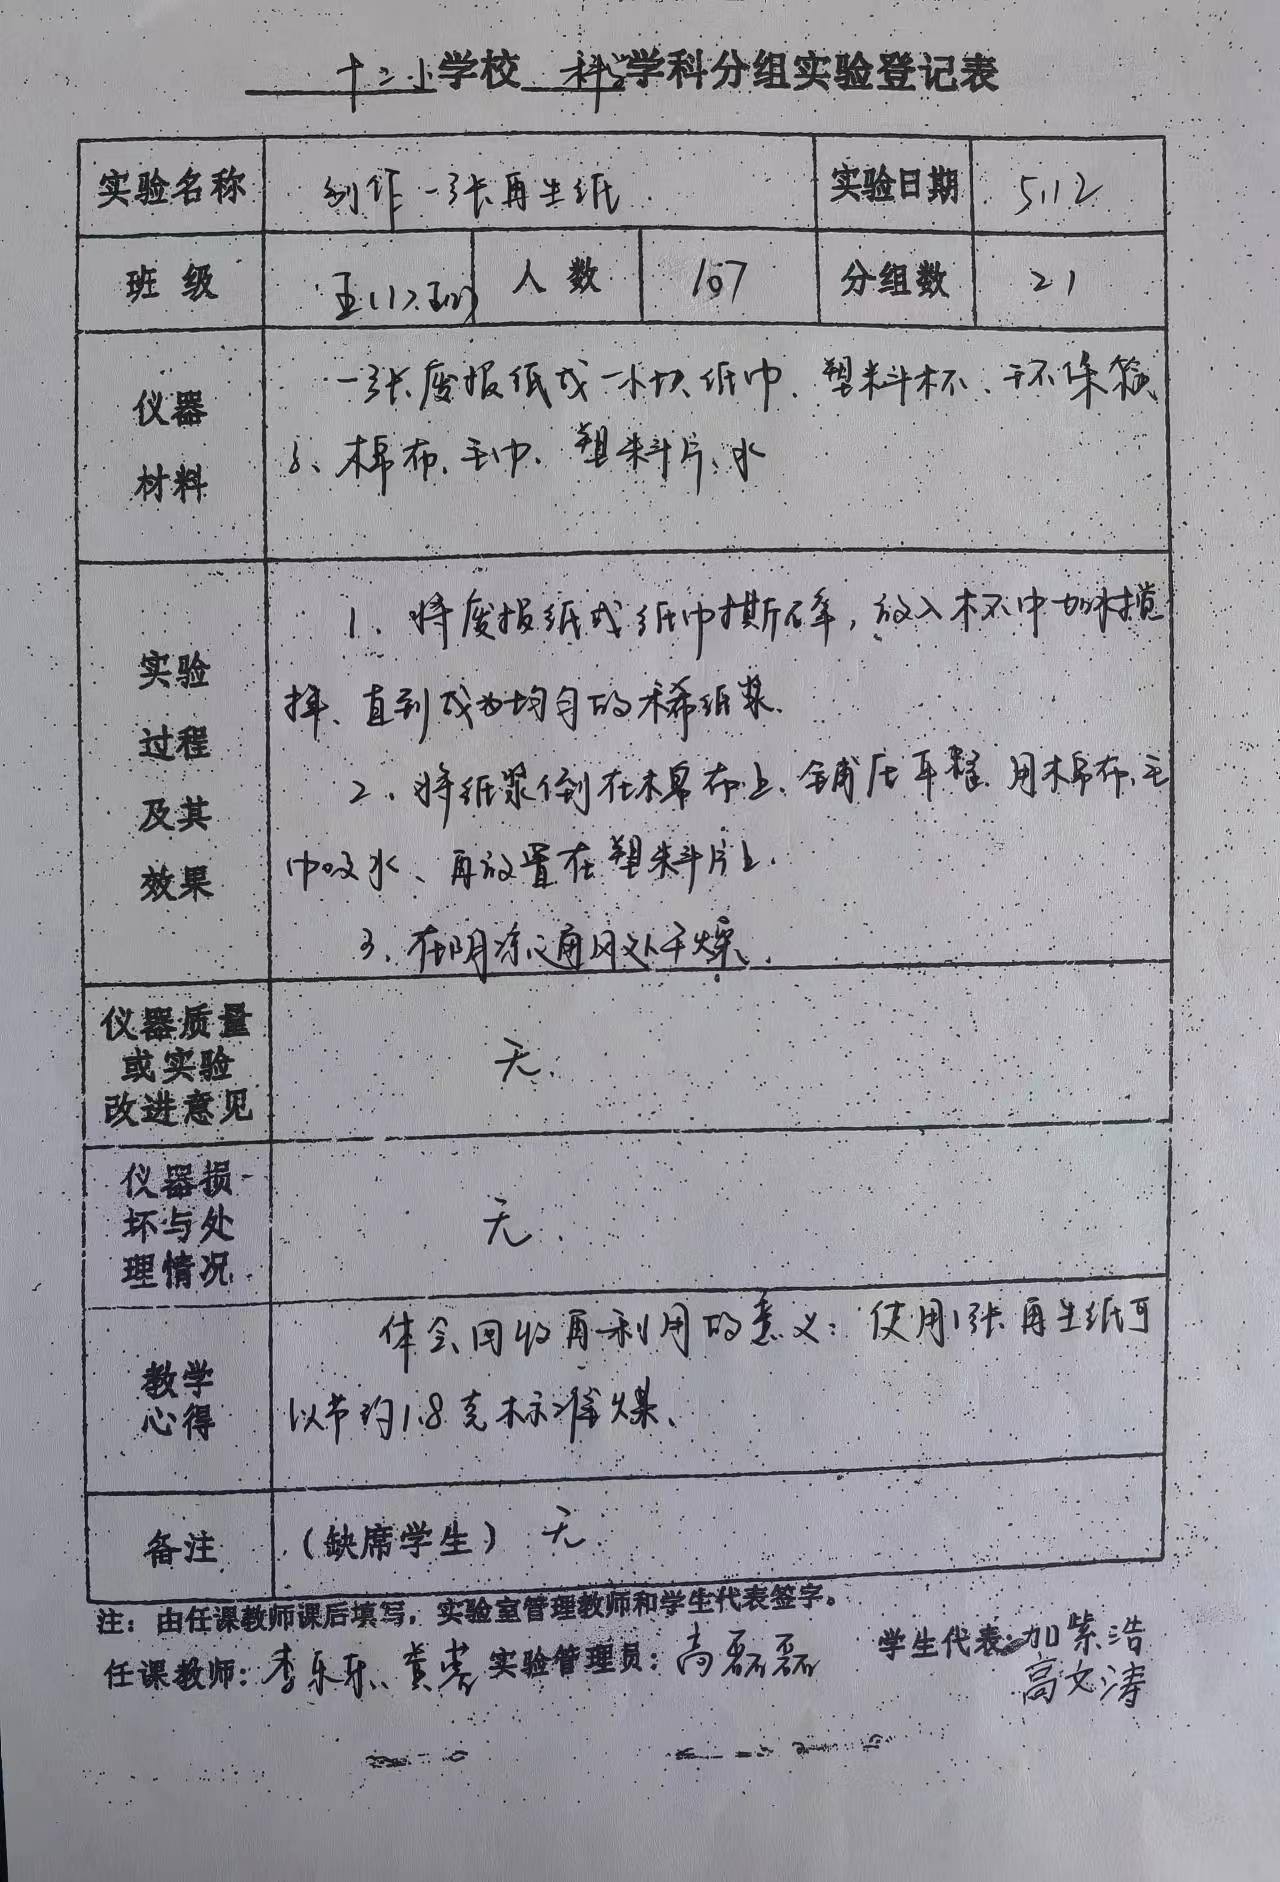 十二小学校 科学学科分组实验登记表
实验名称 制作一张再生纸 实验日期 5.12
班级 五(1)、五(2) 人数 107 分组数 21
仪器材料
一张废报纸或一小块纸巾、塑料杯、
棉布、毛巾、塑料片、水
实验过程及其效果
1、将废报纸或纸巾撕碎,放入杯中加水搅
拌、直到成为均匀的稀纸浆.
2、将纸浆倒在棉布上、铺压平整、用棉布、毛
巾吸水、再放置在塑料片上.
3、在阴凉通风处干燥、
仪器质量
或实验
改进意见
无.
仪器损
坏与处
理情况
无.
教学心得
体会回收再利用的意义:使用1张再生纸可
以节约1.8克标准煤、
备注 (缺席学生) 无.
注:由任课教师课后填写,实验室管理教师和学生代表签字。
任课教师:李乐乐、黄 实验管理员:尚磊磊 学生代表:加紫浩
高文涛